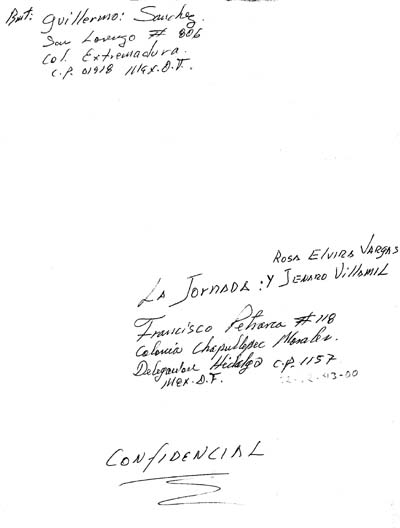 Rmt: Guillermo: Sanchez.
San Lorenzo # 806
Col. Extremadura.
C.P. 01918 Mex. D.F.
ROSA ELVIRA VARGAS
LA JORNADA: Y JENARO VillAMIL
Francisco Petrarca # 118
Colonia Chapultepec Morales.
Delegacion Hidalgo C.P. 1157
Mex. D.F.
CONFIDENCIAL